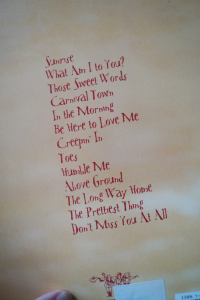 Sunrise
What Am I to You?
Those Sweet Words
Carnival Town
In the Morning
Be Here to Love Me
Creepin' In
Toes
Humble Me
Above Ground
The Long Way Home
The Prettiest Thing
Don't Miss You At All